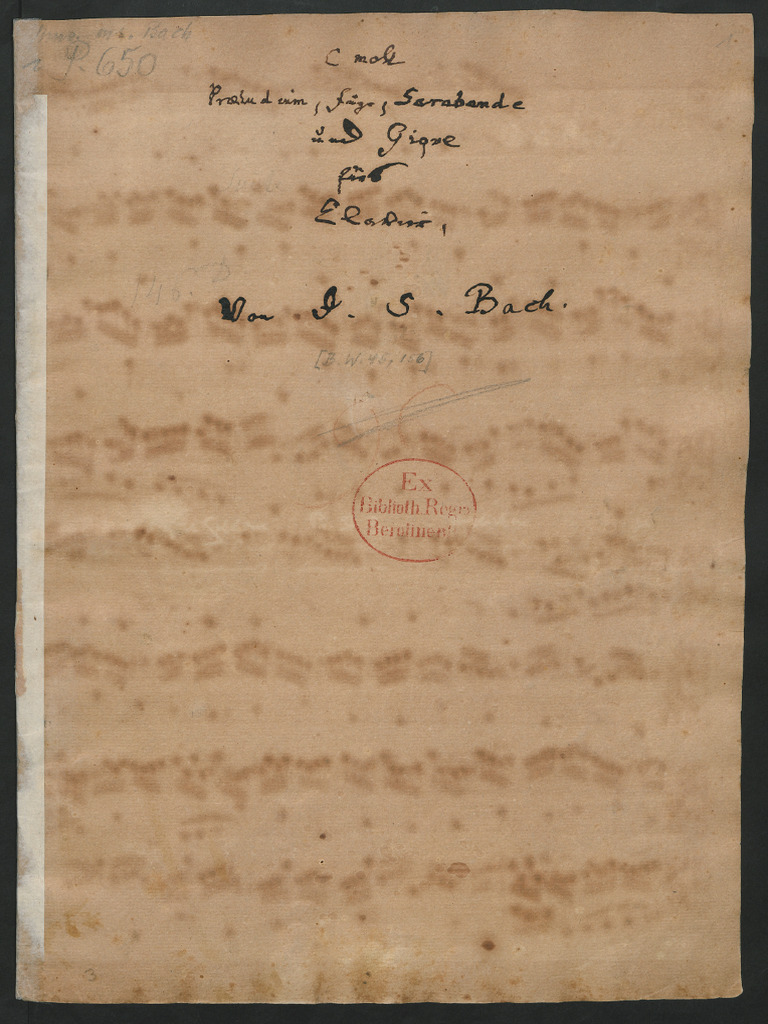 Mus. ms. Bach
P. 650
1.
C moll
Præludium, Fuge, Sarabande
und Gigve
fürs
Clavier,
Von J. S. Bach.
[B. W. 45, 156]
Ex
Biblioth. Regia
Berolinensi
3